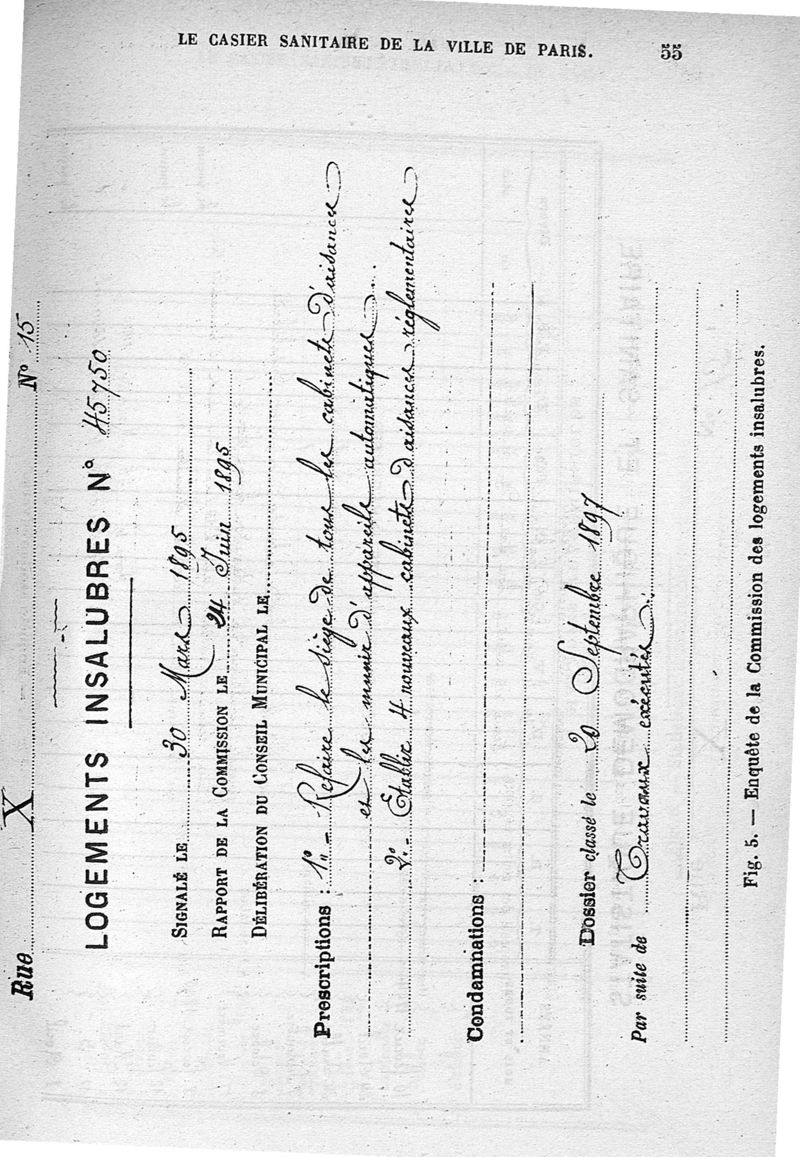 LE CASIER SANITAIRE DE LA VILLE DE PARIS. 55
Rue X N° 15
LOGEMENTS INSALUBRES N° 45750
SIGNALÉ LE 30 Mars 1895
RAPPORT DE LA COMMISSION LE 24 Juin 1895
DÉLIBÉRATION DU CONSEIL MUNICIPAL LE
Prescriptions : 1° - Refaire le siège de tous les cabinets d'aisances
et les munir d'appareils automatiques.
2° - Etablir 4 nouveaux cabinets d'aisances réglementaires
Condamnations :
Dossier classé le 20 Septembre 1897
Par suite de Travaux exécutés.
Fig. 5. — Enquête de la Commission des logements insalubres.